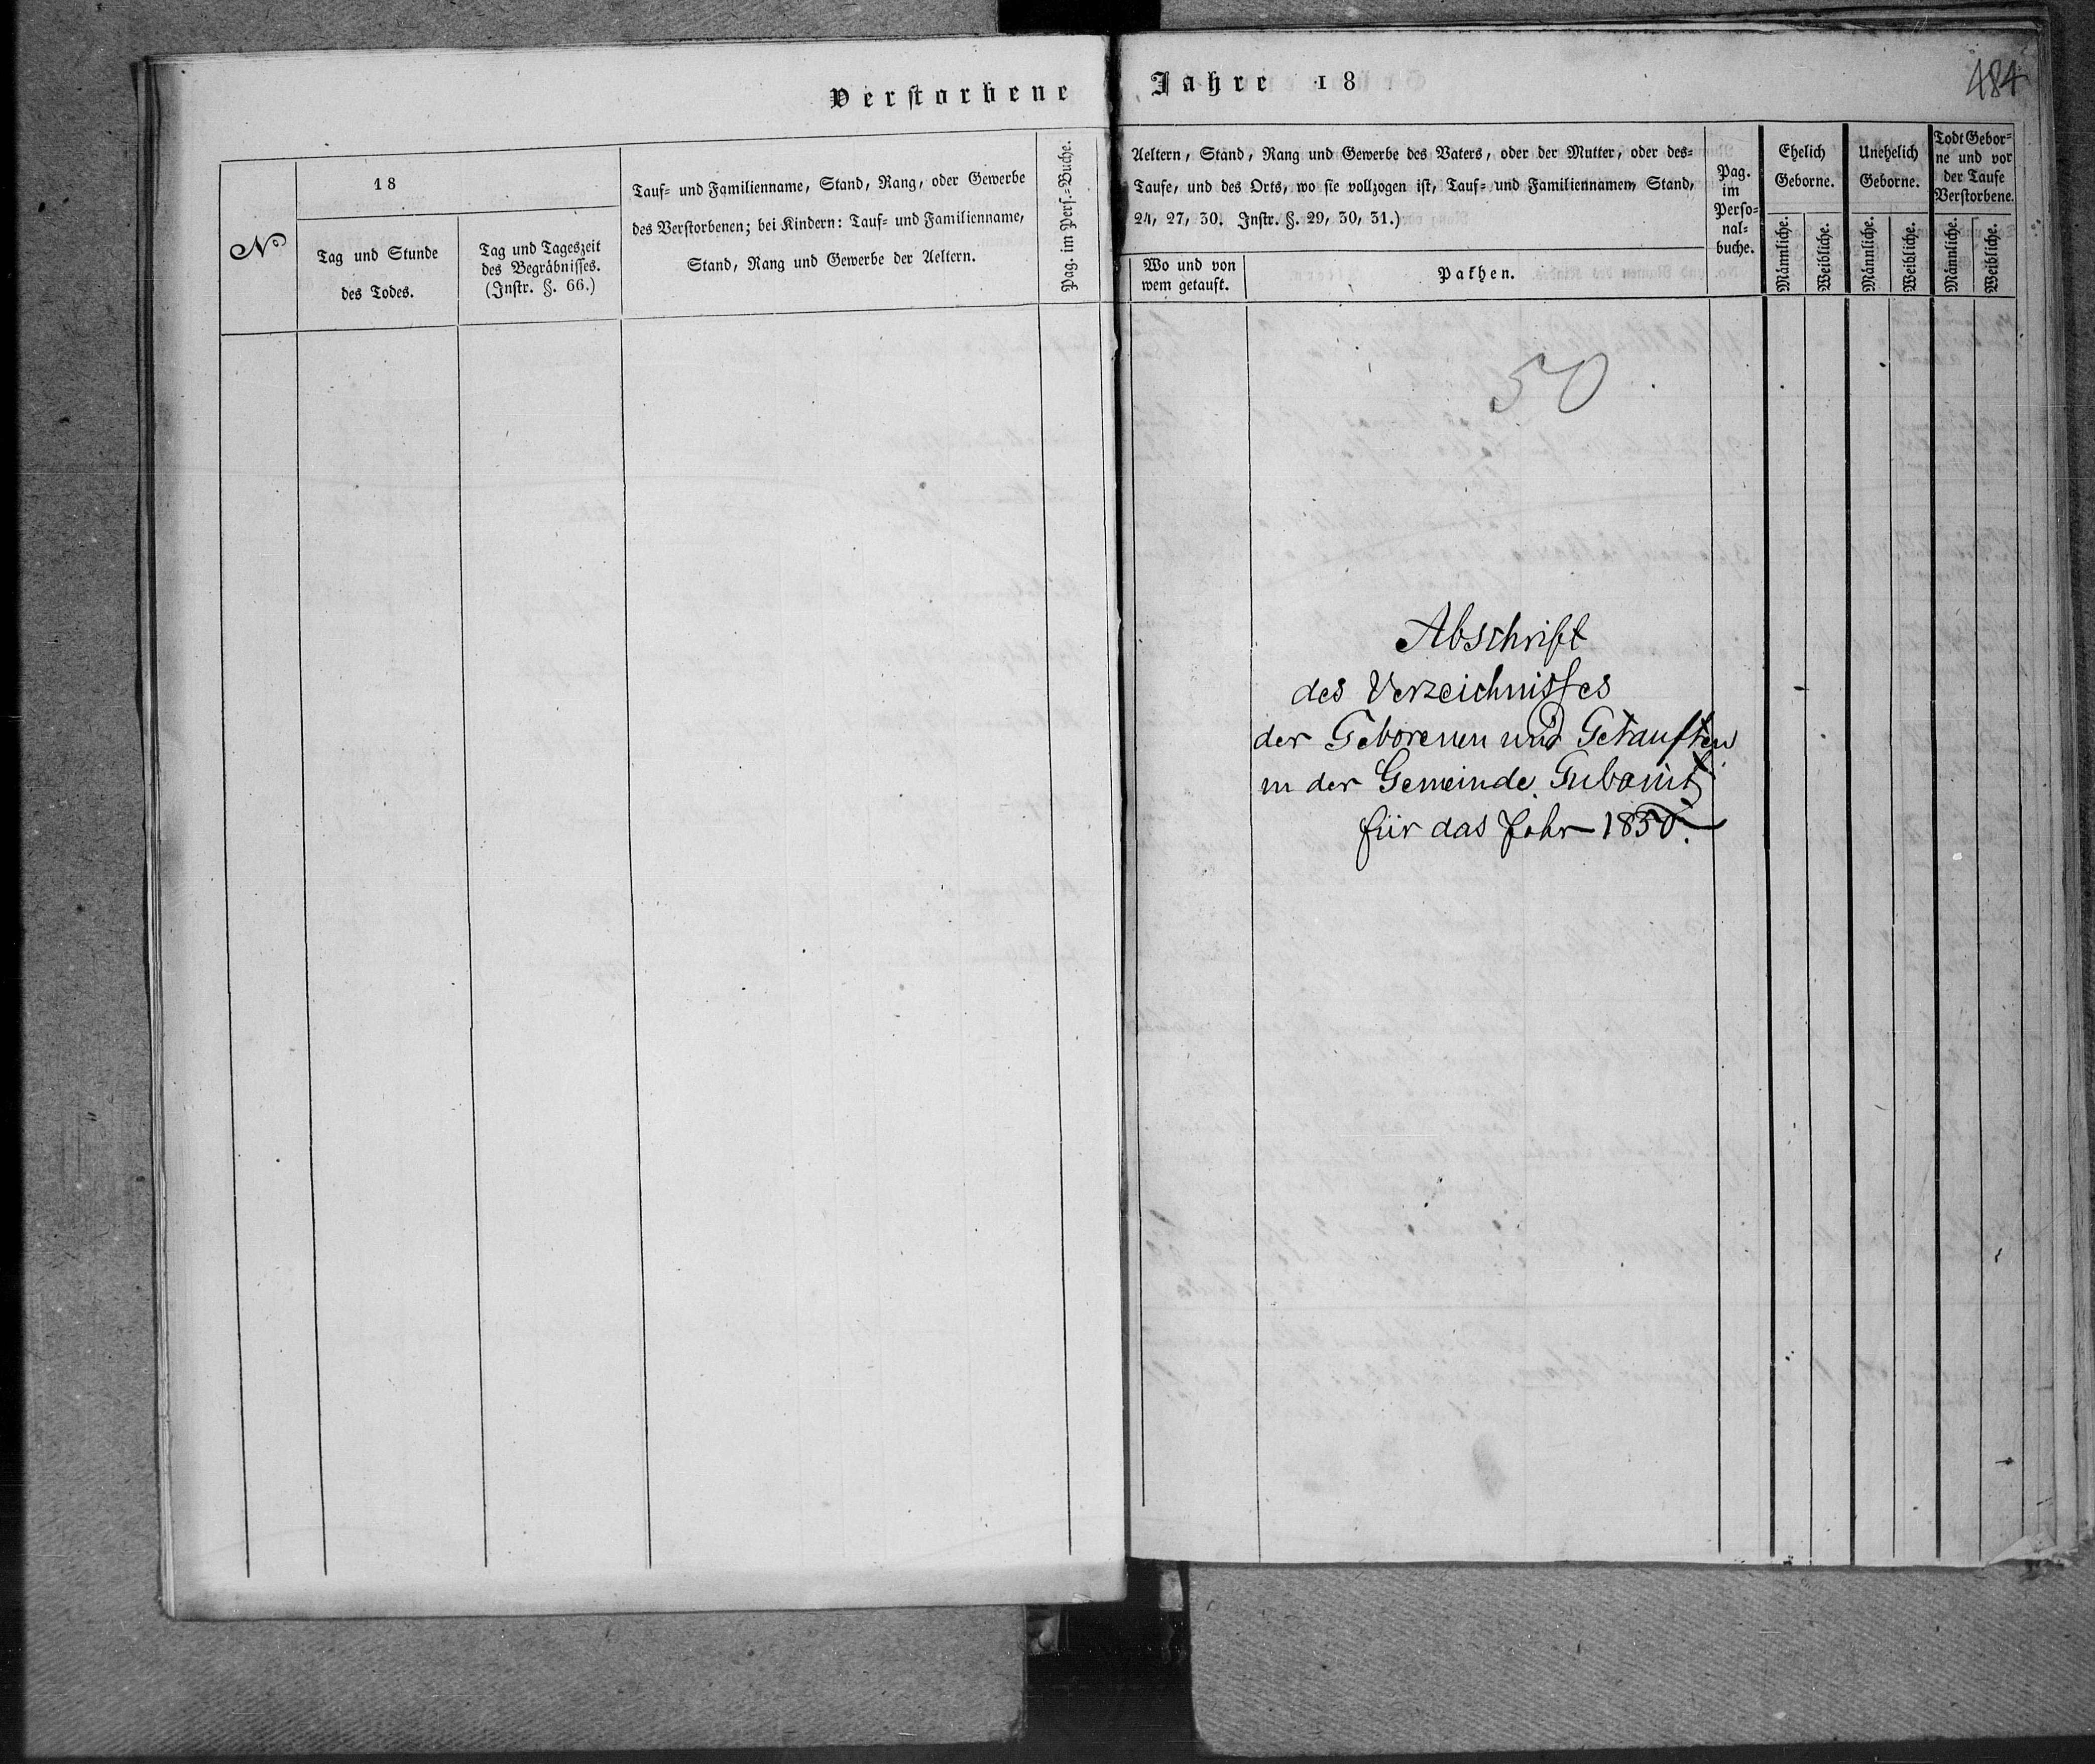 Verstorbene
No
18
Tag und Stunde
des Todes.
Tag und Tageszeit
des Begräbnisses.
(Instr. §. 66.)
Tauf= und Familienname, Stand, Rang, oder Gewerbe
des Verstorbenen; bei Kindern: Tauf= und Familienname,
Stand, Rang und Gewerbe der Aeltern.
Pag. im Pers.=Buche.
Jahre 18
484
Aeltern, Stand, Rang und Gewerbe des Vaters, oder der Mutter, oder des=
Taufe, und des Orts, wo sie vollzogen ist, Tauf= und Familiennamen, Stand,
24, 27, 30. Instr. §. 29, 30, 31.)
Wo und von
wem getauft.
Pathen.
Pag.
im
Perso=
nal=
buche.
Ehelich
Geborne.
Männliche.
Weibliche.
Unehelich
Geborne.
Männliche.
Weibliche.
Todt Gebor=
ne und vor
der Taufe
Verstorbene.
Männliche.
Weibliche.
50
Abschrift
des Verzeichnisses
der Geborenen und Getauften
in der Gemeinde
für das Jahr 1850.